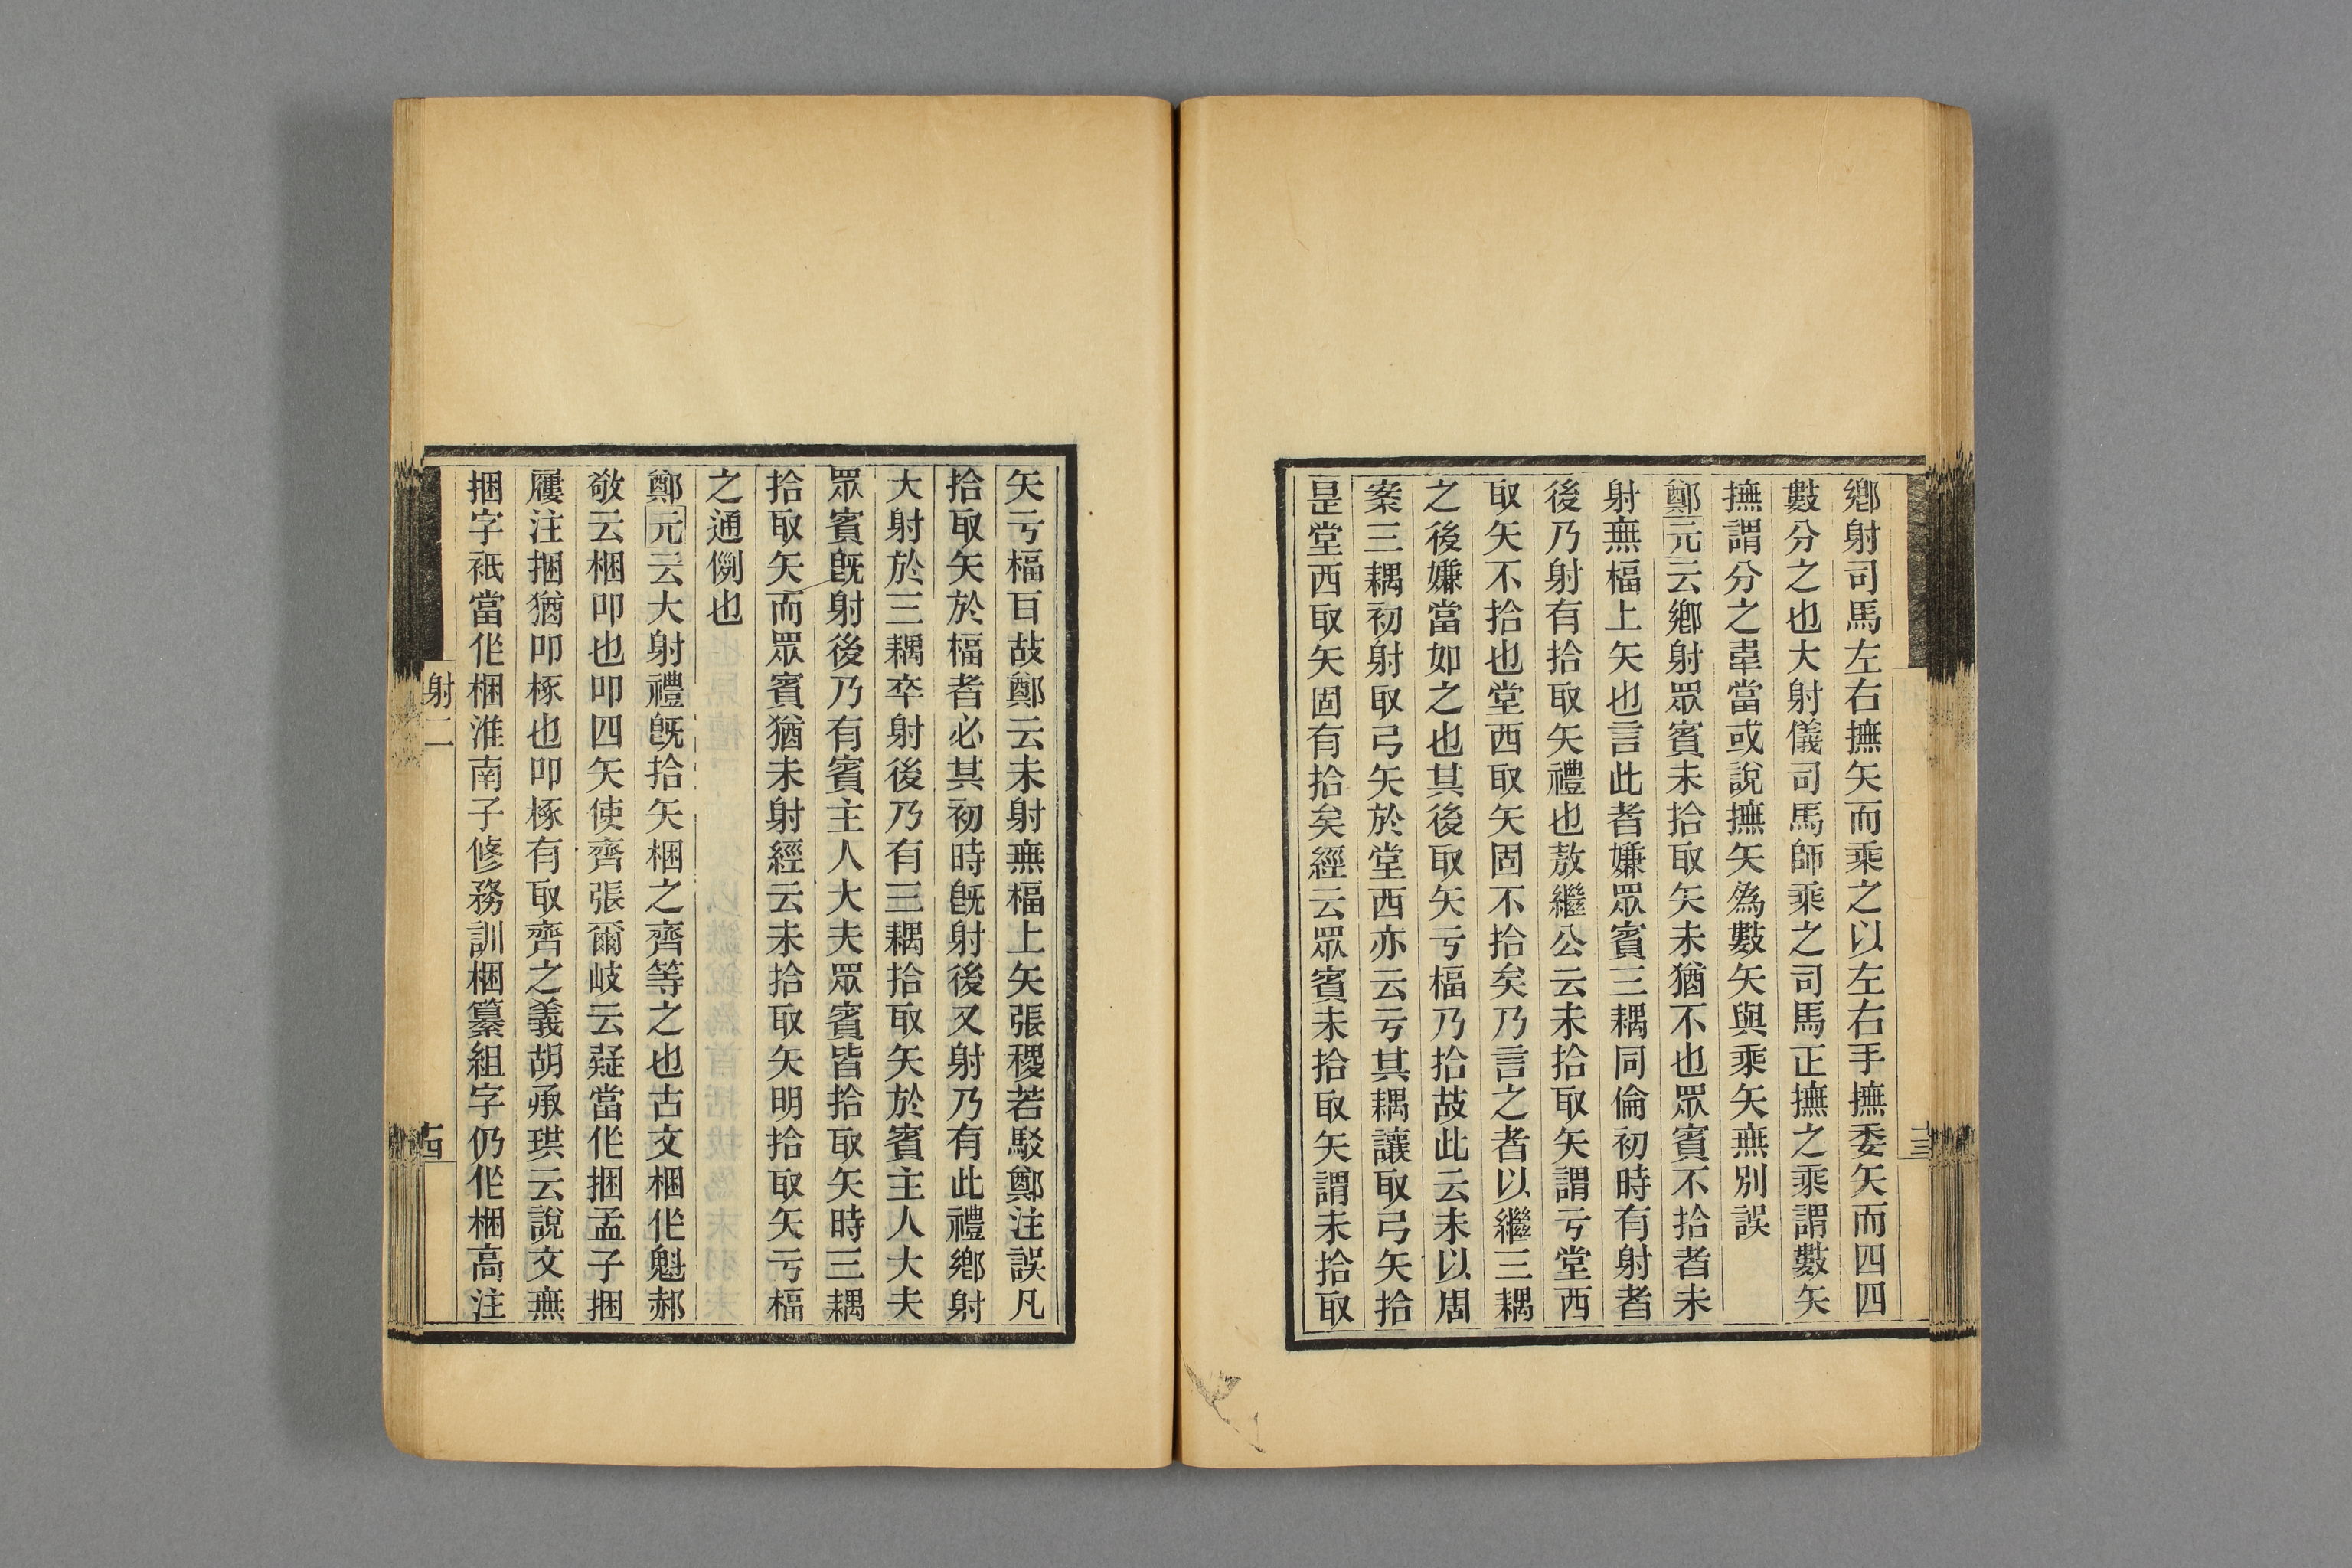 鄉射司馬左右撫矢而乘之以左右手撫委矢而四四
數分之也大射儀司馬師乘之司馬正撫之乘謂數矢
撫謂分之辠當或說撫矢為數矢與乘矢無別誤
鄭元云鄉射眾賓未拾取矢未猶不也眾賓不拾者未
射無楅上矢也言此者嫌眾賓三耦同倫初時有射者
後乃射有拾取矢禮也敖繼公云未拾取矢謂亏堂西
取矢不拾也堂西取矢固不拾矣乃言之者以繼三耦
之後嫌當如之也其後取矢亏楅乃拾故此云未以周
案三耦初射取弓矢於堂西亦云亏其耦讓取弓矢拾
是堂西取矢固有拾矣經云眾賓未拾取矢謂未拾取
矢亏楅百故鄭云未射無楅上矢張稷若駁鄭注誤凡
拾取矢於楅者必其初時旣射後又射乃有此禮鄉射
大射於三耦卒射後乃有三耦拾取矢於賓主人大夫
眾賓旣射後乃有賓主人大夫眾賓皆拾取矢時三耦
拾取矢而眾賓猶未射經云未拾取矢明拾取矢亏楅
之通例也
鄭元云大射禮旣拾矢梱之齊等之也古文梱作魁郝
敬云梱叩也叩四矢使齊張爾岐云疑當作捆孟子捆
屨注捆猶叩椓也叩椓有取齊之義胡承珙云說文無
捆字祇當作梱淮南子修務訓梱纂組字仍作梱高注
射二
十四